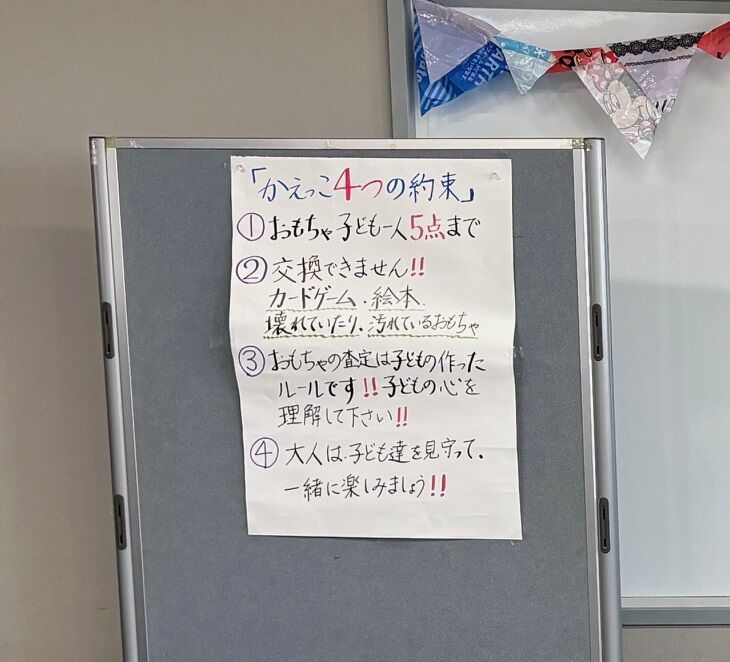 「かえっこ4つの約束」
① おもちゃ子ども一人5点まで
② 交換できません!!
カードゲーム．絵本．
壊れていたり．汚れているおもちゃ
③ おもちゃの査定は子どもの作った
ルールです!!子どもの心を
理解して下さい!!
④ 大人は．子ども達を見守って．
一緒に楽しみましょう!!